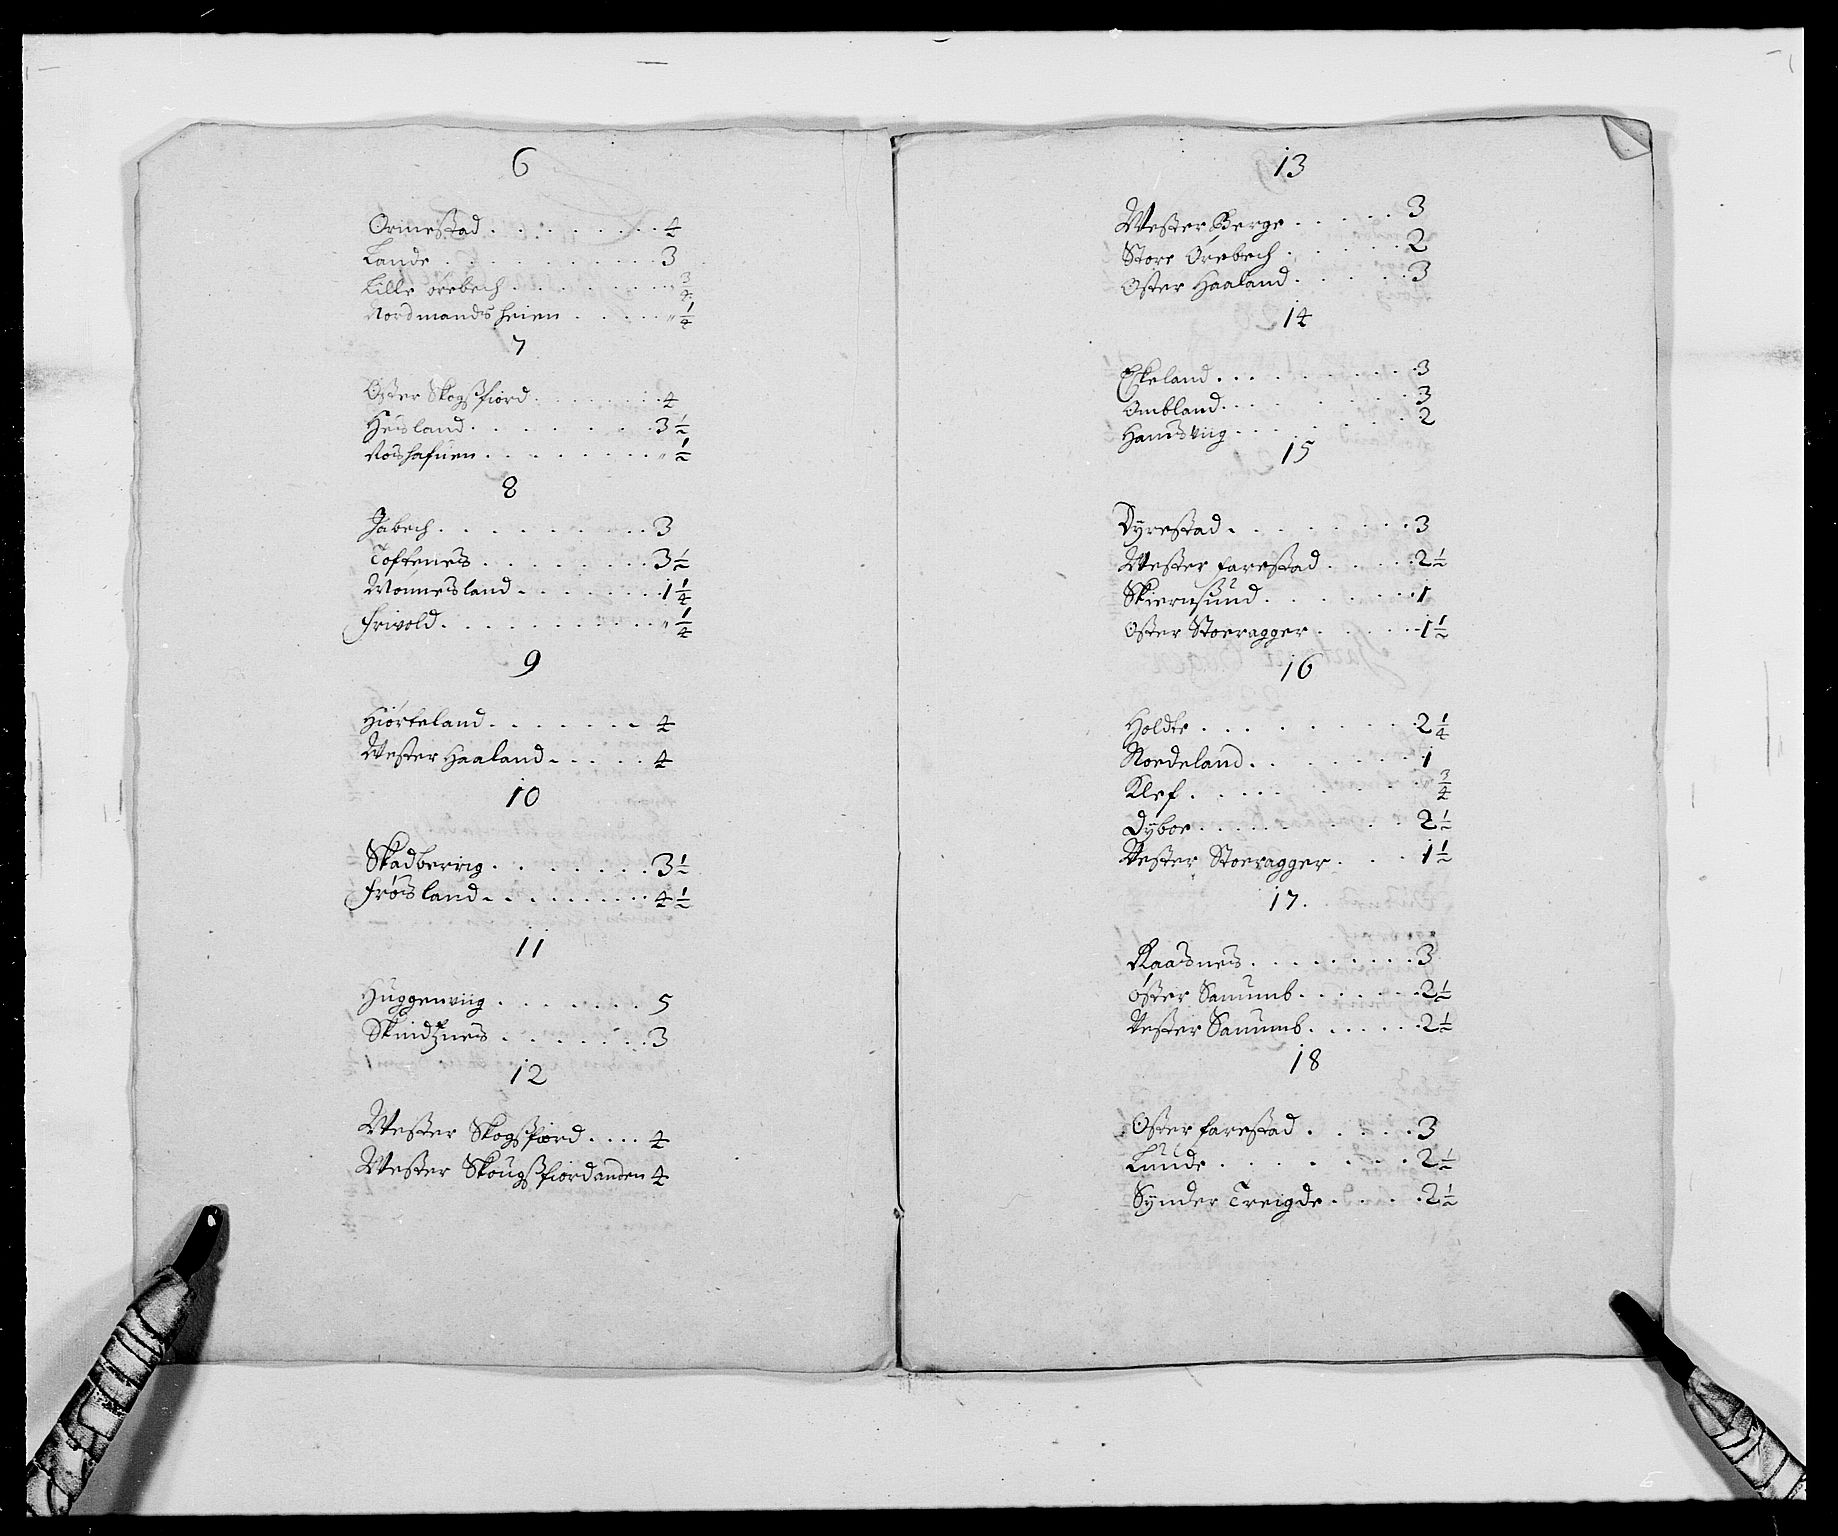 6
Ormestad . . . . . . . . . 4
Lande . . . . . . . . . . 3
Lille örebech . . . . . . . . " 3/4
Nordmands heien . . . . . " 1/4
7
Oster Skogsfiord . . . . . . 4
Heisland . . . . . . . . 3 1/2
Roishafuen . . . . . . . . " 1/2
8
Jåbech . . . . . . . . . 3
Toftenes . . . . . . . . 3 1/2
Monnesland . . . . . . . 1 1/4
Frivold . . . . . . . . . . " 1/4
9
Hiörteland . . . . . . . 4
Wester Haaland . . . . . 4
10
Skadberrig . . . . . . . 3 1/2
Fröisland . . . . . . . . 4 1/2
11
Huggenviig . . . . . . . 5
Skindznes . . . . . . . 3
12
Wester Skogsfiord . . . . 4
Wester Skougsfiordanden 4
13
Wester Berge . . . . . 3
Store Örebech . . . . . 2
Oster Haaland . . . . . 3
14
Eskeland . . . . . . . . . 3
Ombland . . . . . . . . 3
Hamsviig . . . . . . . 2
15
Dyrestad . . . . . . . . 3
Wester Farestad . . . . . 2 1/2
Skiernsund . . . . . . . 1
Oster Stoeragger . . . . . 1 1/2
16
Holdte . . . . . . . . . 2 1/4
Noedeland . . . . . . . 1
Klef . . . . . . . . . 3/4
Dyboe . . . . . . . . . 2 1/2
Vester Stoeragger . . . . 1 1/2
17.
Raasnes . . . . . . . . . 3
Öster Sanumb . . . . . . 2 1/2
Vester Sanumb . . . . . . 2 1/2
18
Oster Farestad . . . . . 3
Lunde . . . . . . . . 2 1/2
Synder Treigde . . . . . 2 1/2